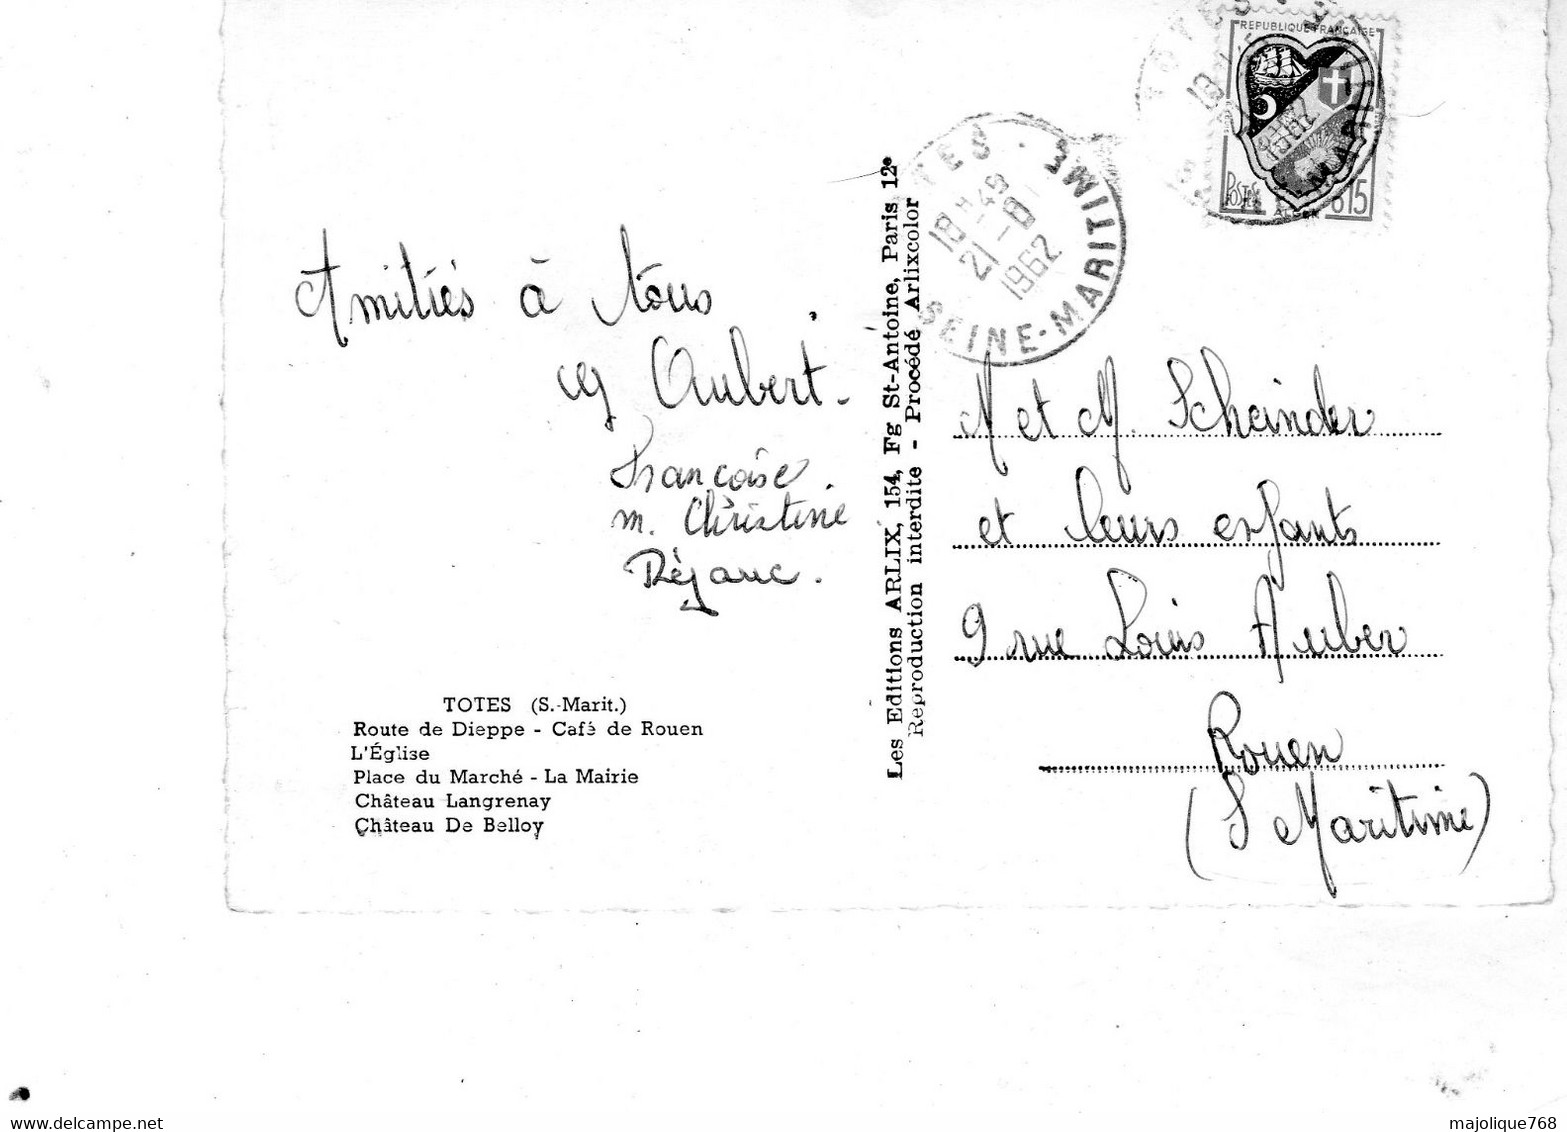 Amitiés à tous
Aubert.
Françoise.
m. Christine
Réjane.
TOTES (S.-Marit.)
Route de Dieppe - Café de Rouen
L'Église
Place du Marché - La Mairie
Château Langrenay
Château De Belloy
Les Editions ARLIX, 154, Fg St-Antoine, Paris 12e
Reproduction interdite - Procédé Arlixcolor
TES · SEINE-MARITIME
18H 45
21 -8
1962
REPUBLIQUE FRANÇAISE
POSTES
ALGER
015
M et M. Scheinder
et leurs enfants
9 rue Louis Auber
Rouen
(S Maritime)
majolique768